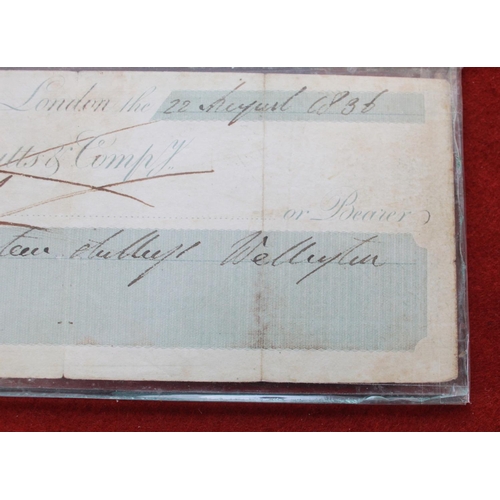 London the 22 August 1836
utts & Compy.
or Bearer
teen shillings Wellington